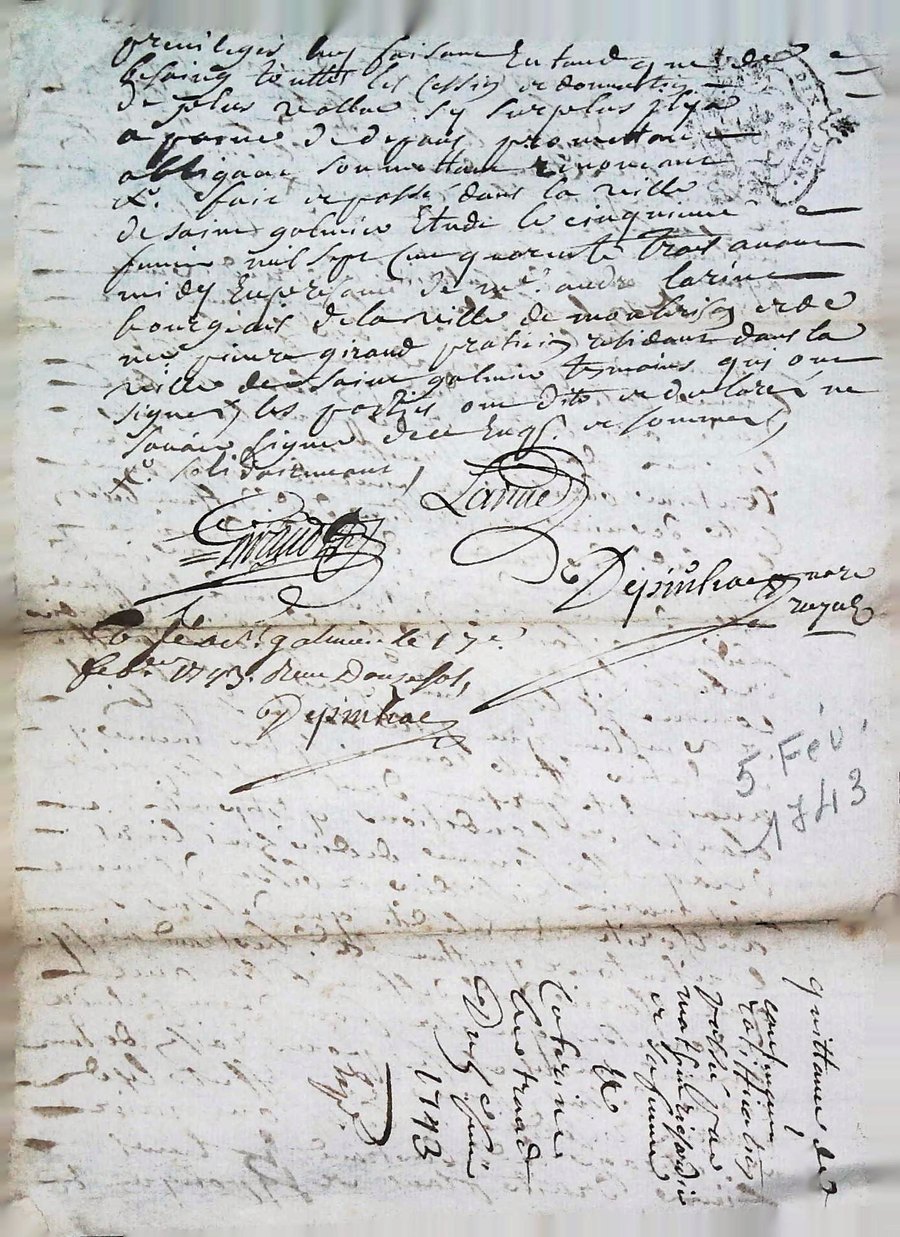 privileges luy faisant En tand que de
besoing toutte les cession et donnation
de plus vallue sy surplus y a
a peine de depans promettant
obligant soummettant renoncant
&c. fait et passé dans la ville
de saint galmier Etude le cinquieme
fevrier mil sept cent quarente trois avant
midy En presance de me. andre larive
bourgeois de la ville de montbrison et de
me pierre giraud praticien residant dans la
ville de saint galmier temoins qui ont
signe les parties ont dit et declaré ne
savoir signer de ce Enqs. et sommes
&c. solidairement
Larive
Giraud
Depinhac nore
royal
Co. a st. galmier le 17e.
febr. 1743. Receu Douze sols,
Depinhac
5 Fév.
1743
quittance de
passé par
mathieu richard
et
a
Caterine
du 5e fevrier
1743
Expé.
DIX DEN.